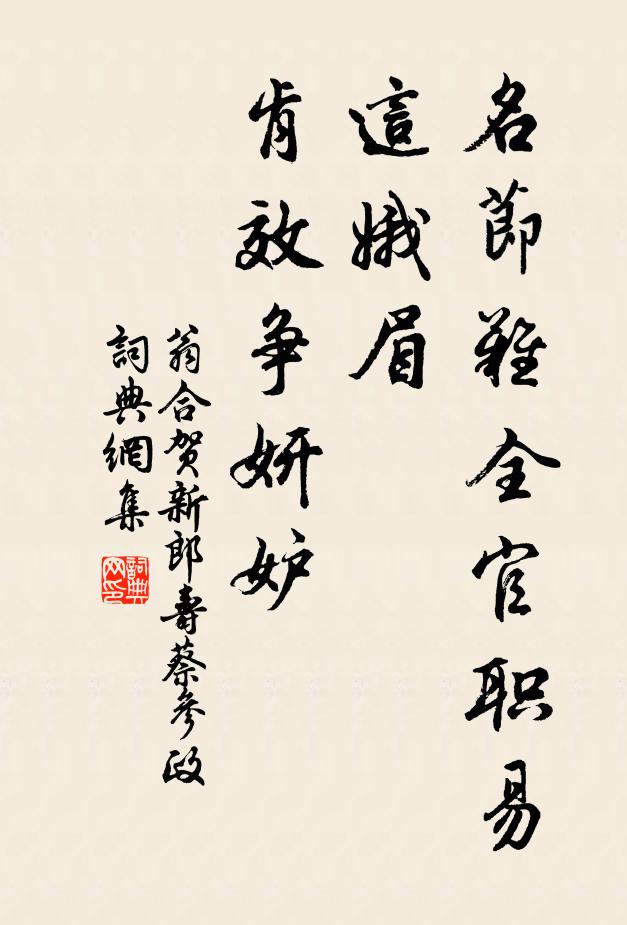 名節難全官职易
這娥眉
肯效争妍妒
翁合贺新郎壽蔡參政
詞典網集
詞典网印